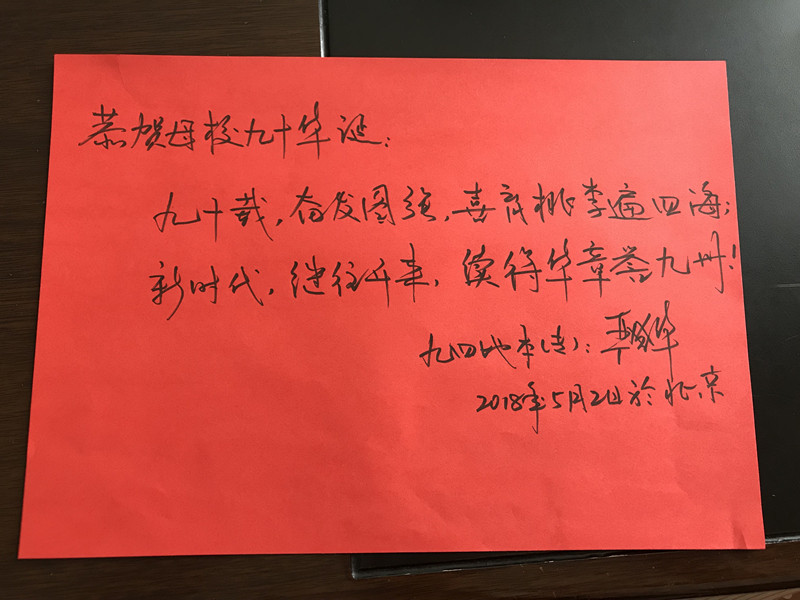 恭贺母校九十华诞：
九十载，奋发图强，喜育桃李遍四海；
新时代，继往开来，续得华章誉九州！
九四地本（专）：
2018年5月2日於北京